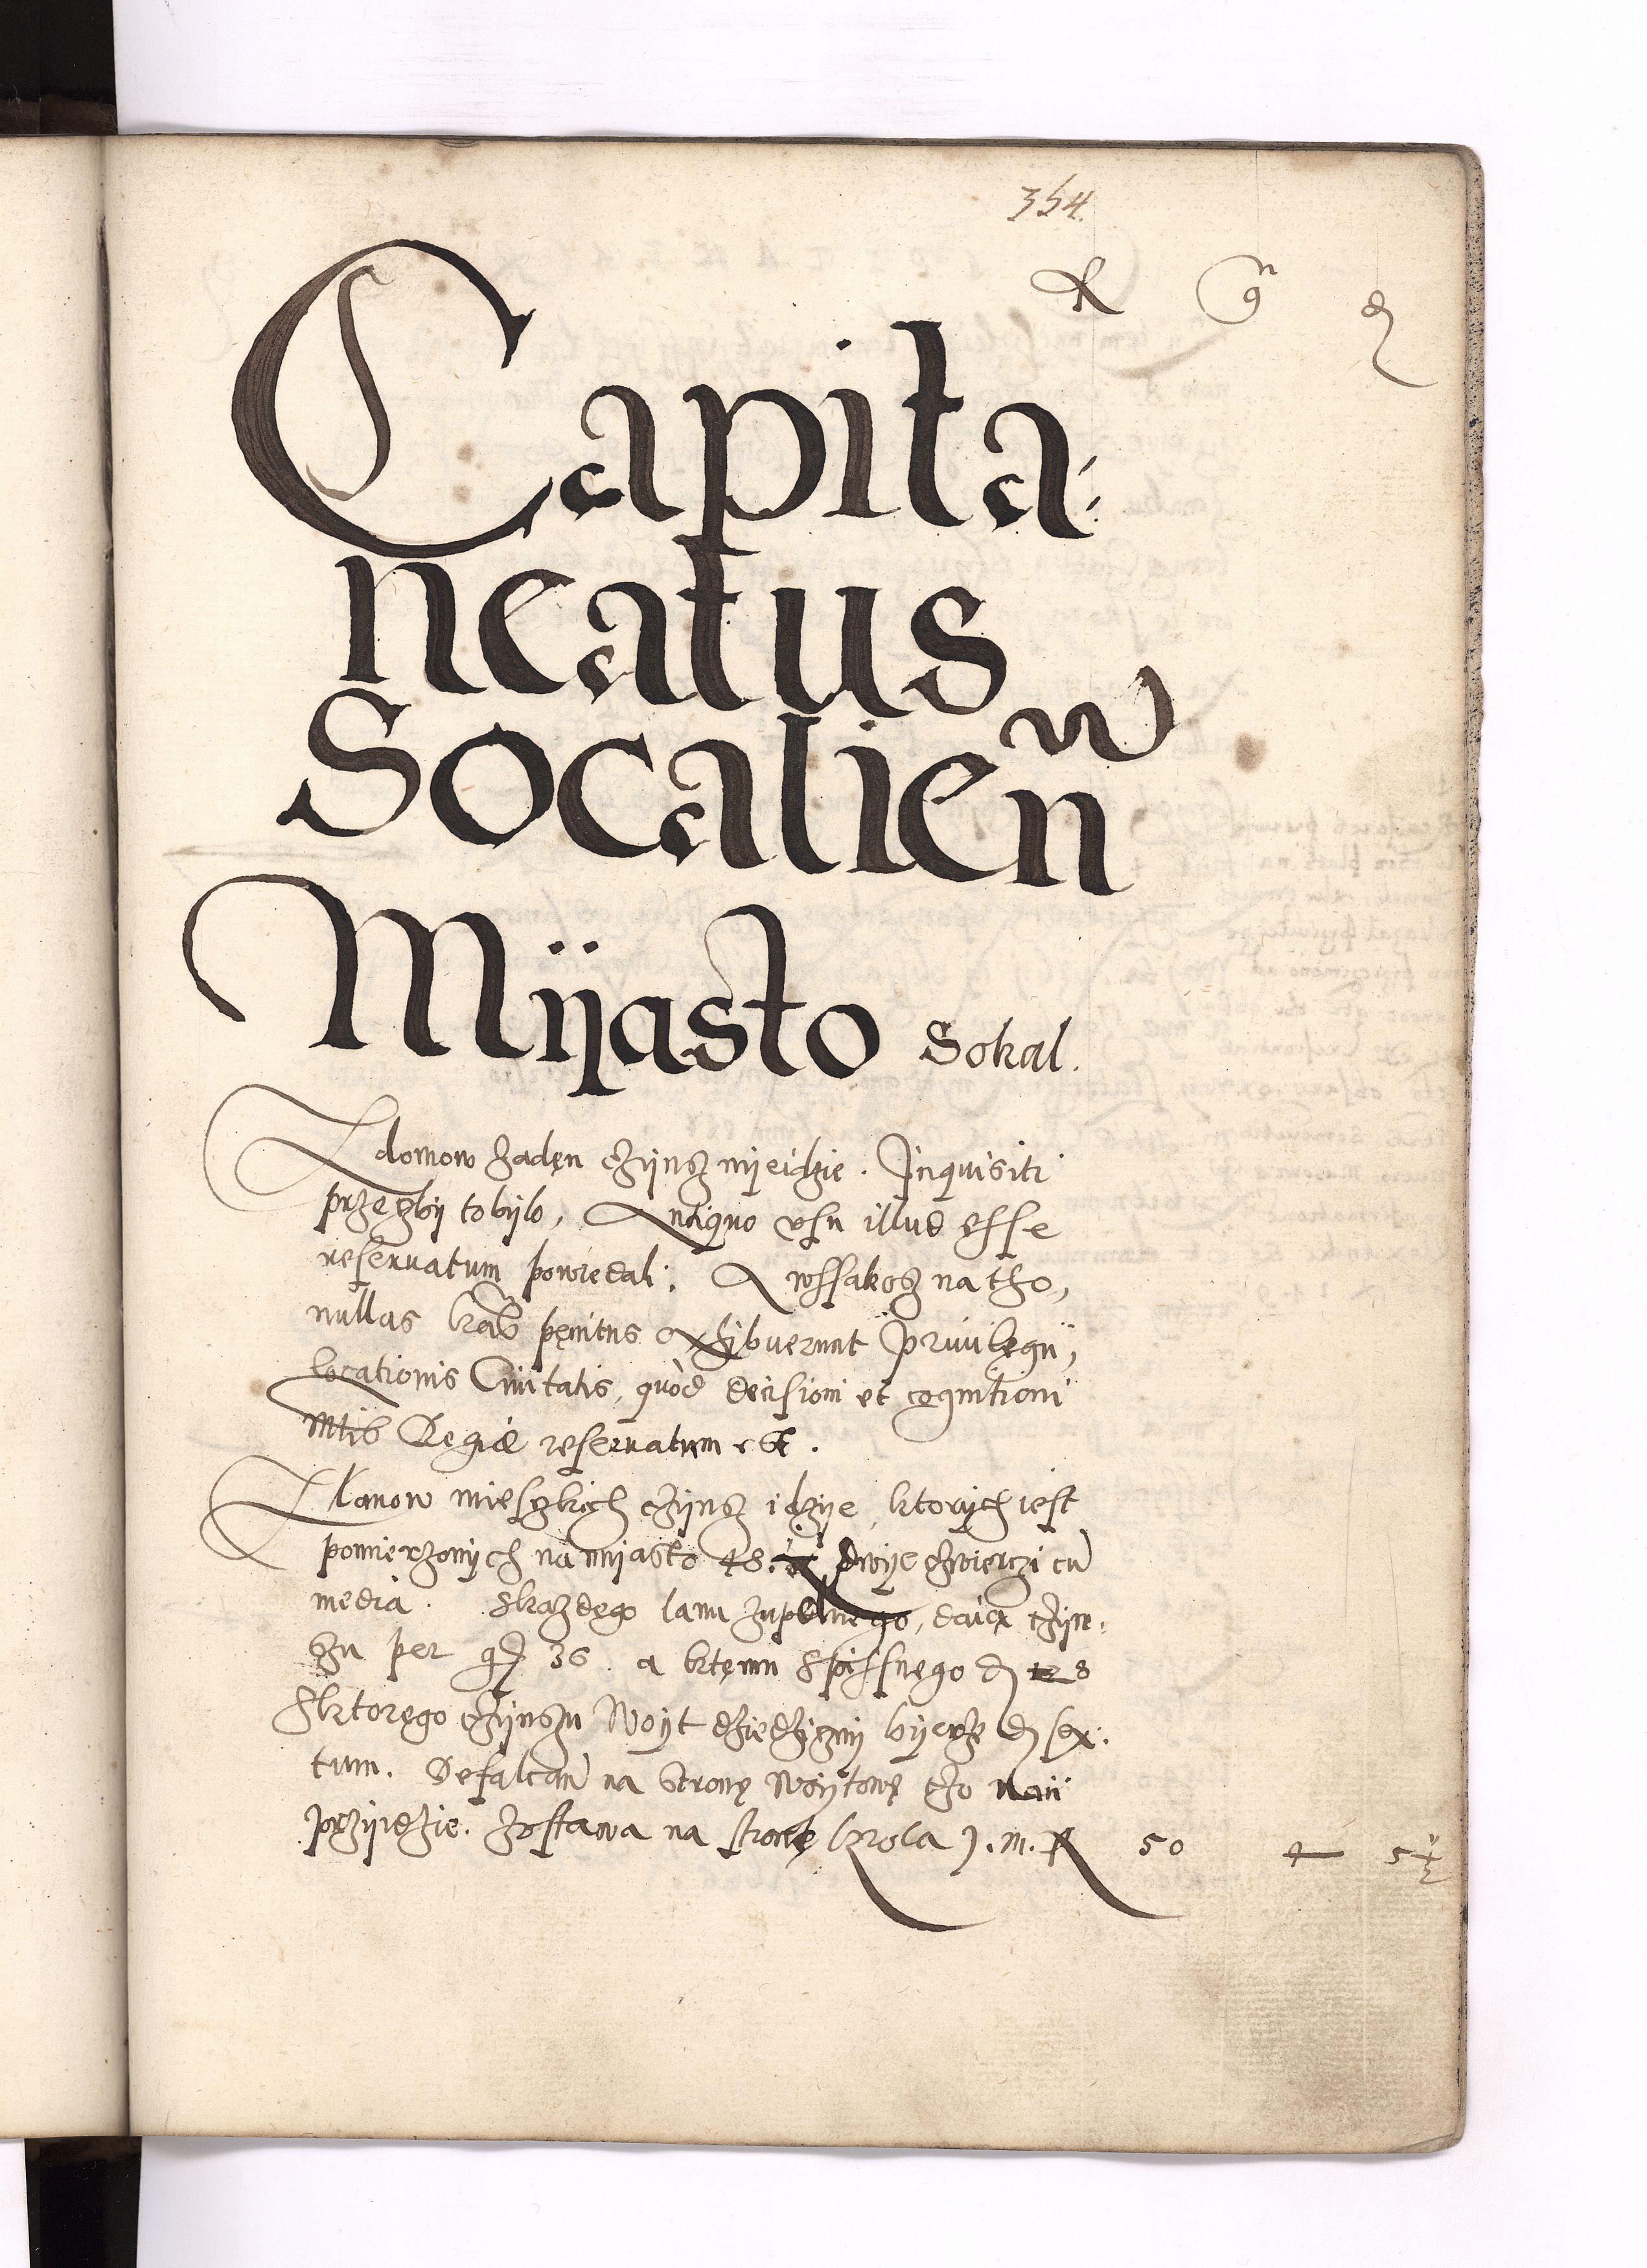 354.
Capita:
neatus
Socalien
Mijasto Sokal.
Z domow żaden czijnsz nijeidzie. Inquisiti
przeczbij to bijlo, Antiquo vsu illud esse
reseruatum powiedali. A wssakosz na tho,
nullas penitus exhibuerunt Priuilegii,
locationis Ciuitatis, quòd decisioni et cognitioni
Mtis Regiæ reseruatum est.
Z lanow mieszkich czijnsz idzije, ktorijch iest
pomierzonijch na mijasto 48. dwije czwierczi cū
media. Skazdego lanu zupelnego, daią czijn:
szu per gr 36. a ktemu Spissnego d 8
Sktorego czijnszu Woijt dziedzicznij bijerze d sex:
tum. Defalcaū na stronę Woijtowę czo nań
przijidzie. Zostawa na stronę Krola J. m. R 50 5½